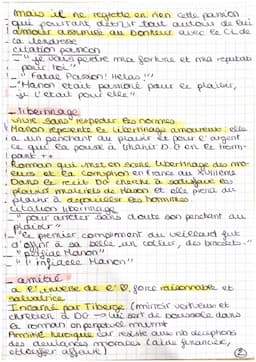 mais il ne regrette en rien cette passion
qui pourtant détruit tout autour de lui
amour assimilé au bonheur avec le CL de
la tendresse
citation passion
- "je vais perdre ma fortune et ma réputation
pour toi"
- "Fatale Passion! Hélas!"
- "Manon était passionné pour le plaisir,
je l'étais pour elle"
- libertinage
vivre sans respecter les normes
Manon représente le libertinage amoureux : elle
a un penchant au plaisir et pour l'argent
ce qui la pousse à trahir D.G en le trom-
pant ++
Roman qui met en scène libertinage des mo-
eurs et la corruption en France au XVIIIème
Dans le récit DG cherche à satisfaire les
plaisirs de Manon et elle prend du
plaisir à dépouiller les hommes.
Citation libertinage
- "pour arrêter sans doute son penchant au
plaisir"
- "le premier compliment du vieillard fut
d'offrir à sa belle un collier, des bracelets"
- "perfide Manon"
- "l'infidèle Manon"
- amitié
à l'inverse de l'♡, force raisonnable et
salvatrice
Incarné par Tiberge (miroir vertueux et
chrétien à DG → lui sert de boussole dans
ce roman en perpétuel
Amitié héroïque car résiste aux déceptions
des doutances morales (aide financière,
affaire)
2